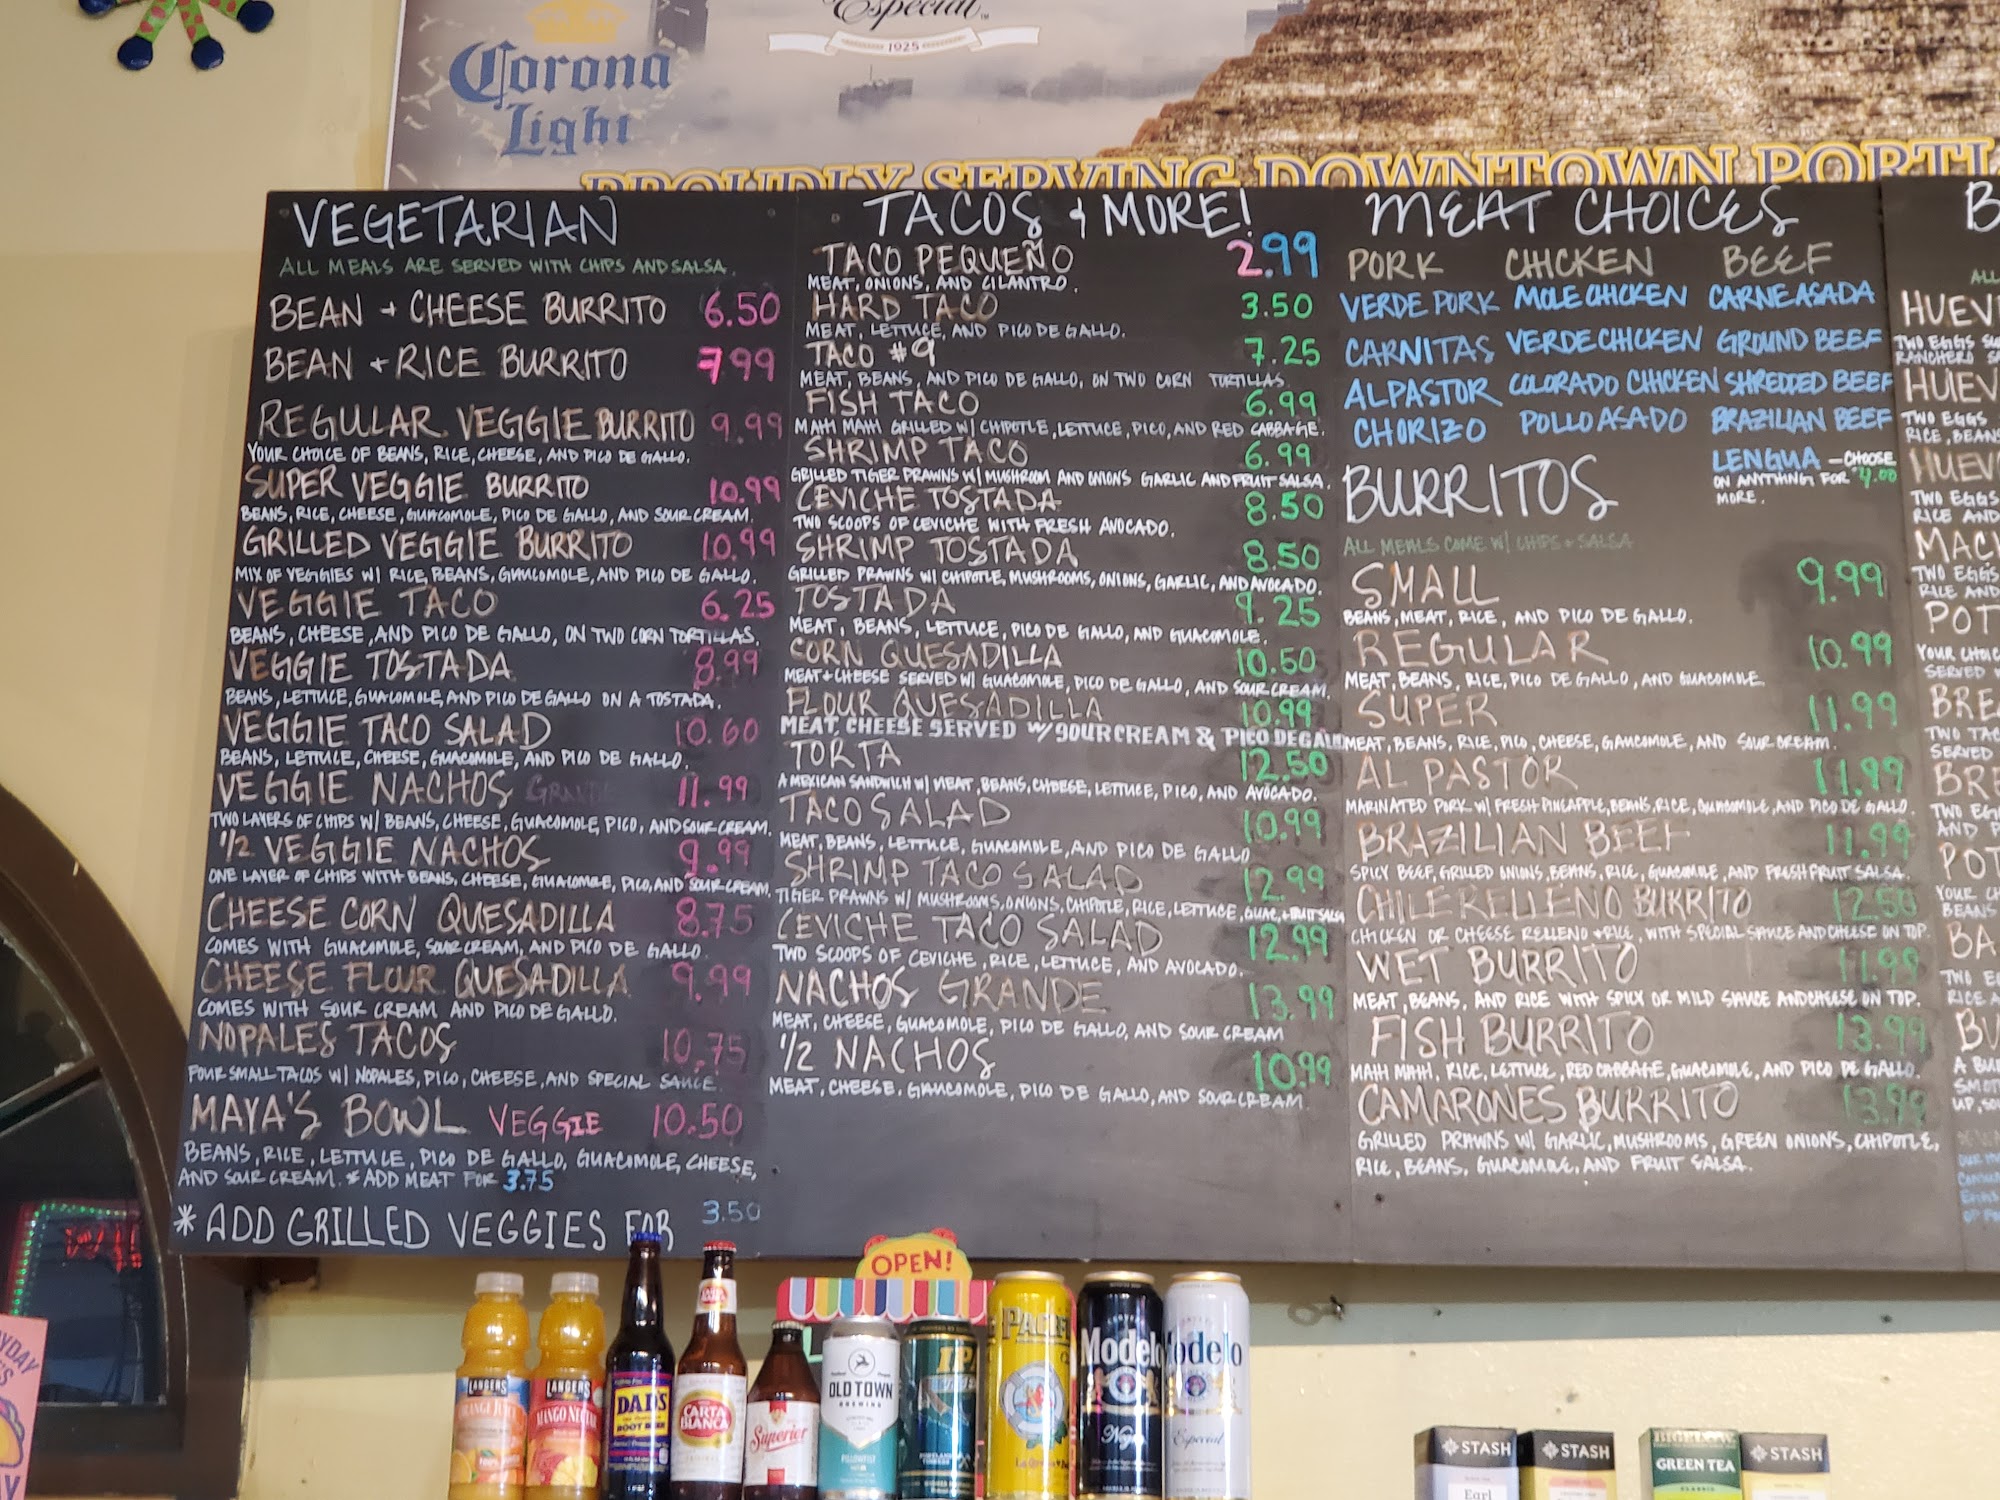 Especial
1925
Corona
Light
PROUDLY SERVING DOWNTOWN
VEGETARIAN
ALL MEALS ARE SERVED WITH CHIPS AND SALSA.
BEAN + CHEESE BURRITO 6.50
BEAN + RICE BURRITO 7.99
REGULAR VEGGIE BURRITO 9.99
YOUR CHOICE OF BEANS, RICE, CHEESE, AND PICO DE GALLO.
SUPER VEGGIE BURRITO 10.99
BEANS, RICE, CHEESE, GUACOMOLE, PICO DE GALLO, AND SOUR CREAM.
GRILLED VEGGIE BURRITO 10.99
MIX OF VEGGIES W/ RICE, BEANS, GUACOMOLE, AND PICO DE GALLO.
VEGGIE TACO 6.25
BEANS, CHEESE, AND PICO DE GALLO, ON TWO CORN TORTILLAS.
VEGGIE TOSTADA 8.99
BEANS, LETTUCE, GUACOMOLE, AND PICO DE GALLO ON A TOSTADA.
VEGGIE TACO SALAD 10.60
BEANS, LETTUCE, CHEESE, GUACOMOLE, AND PICO DE GALLO.
VEGGIE NACHOS GRANDE 11.99
TWO LAYERS OF CHIPS W/ BEANS, CHEESE, GUACOMOLE, PICO, AND SOUR CREAM.
1/2 VEGGIE NACHOS 9.99
ONE LAYER OF CHIPS WITH BEANS, CHEESE, GUACOMOLE, PICO, AND SOUR CREAM.
CHEESE CORN QUESADILLA 8.75
COMES WITH GUACOMOLE, SOUR CREAM, AND PICO DE GALLO.
CHEESE FLOUR QUESADILLA 9.99
COMES WITH SOUR CREAM AND PICO DE GALLO.
NOPALES TACOS 10.75
FOUR SMALL TACOS W/ NOPALES, PICO, CHEESE, AND SPECIAL SAUCE.
MAYA'S BOWL VEGGIE 10.50
BEANS, RICE, LETTUCE, PICO DE GALLO, GUACOMOLE, CHEESE,
AND SOUR CREAM. * ADD MEAT FOR 3.75
* ADD GRILLED VEGGIES FOR 3.50
TACOS & MORE!
TACO PEQUEÑO 2.99
MEAT, ONIONS, AND CILANTRO.
HARD TACO 3.50
MEAT, LETTUCE, AND PICO DE GALLO.
TACO #9 7.25
MEAT, BEANS, AND PICO DE GALLO, ON TWO CORN TORTILLAS.
FISH TACO 6.99
MAHI MAHI GRILLED W/ CHIPOTLE, LETTUCE, PICO, AND RED CABBAGE.
SHRIMP TACO 6.99
GRILLED TIGER PRAWNS W/ MUSHROOM AND ONIONS GARLIC AND FRUIT SALSA.
CEVICHE TOSTADA 8.50
TWO SCOOPS OF CEVICHE WITH FRESH AVOCADO.
SHRIMP TOSTADA 8.50
GRILLED PRAWNS W/ CHIPOTLE, MUSHROOMS, ONIONS, GARLIC, AND AVOCADO.
TOSTADA 9.25
MEAT, BEANS, LETTUCE, PICO DE GALLO, AND GUACOMOLE.
CORN QUESADILLA 10.50
MEAT + CHEESE SERVED W/ GUACOMOLE, PICO DE GALLO, AND SOUR CREAM.
FLOUR QUESADILLA 10.99
MEAT, CHEESE SERVED W/ SOUR CREAM & PICO DE GALLO
TORTA 12.50
A MEXICAN SANDWICH W/ MEAT, BEANS, CHEESE, LETTUCE, PICO, AND AVOCADO.
TACO SALAD 10.99
MEAT, BEANS, LETTUCE, GUACOMOLE, AND PICO DE GALLO
SHRIMP TACO SALAD 12.99
TIGER PRAWNS W/ MUSHROOMS, ONIONS, CHIPOTLE, RICE, LETTUCE, GUAC, + FRUIT SALSA
CEVICHE TACO SALAD 12.99
TWO SCOOPS OF CEVICHE, RICE, LETTUCE, AND AVOCADO.
NACHOS GRANDE 13.99
MEAT, CHEESE, GUACOMOLE, PICO DE GALLO, AND SOUR CREAM
1/2 NACHOS 10.99
MEAT, CHEESE, GUACOMOLE, PICO DE GALLO, AND SOUR CREAM.
MEAT CHOICES
PORK CHICKEN BEEF
VERDE PORK MOLE CHICKEN CARNE ASADA
CARNITAS VERDE CHICKEN GROUND BEEF
AL PASTOR COLORADO CHICKEN SHREDDED BEEF
CHORIZO POLLO ASADO BRAZILIAN BEEF
LENGUA - CHOOSE
ON ANYTHING FOR $4.00
MORE.
BURRITOS
ALL MEALS COME W/ CHIPS + SALSA
SMALL 9.99
BEANS, MEAT, RICE, AND PICO DE GALLO.
REGULAR 10.99
MEAT, BEANS, RICE, PICO DE GALLO, AND GUACOMOLE.
SUPER 11.99
MEAT, BEANS, RICE, PICO, CHEESE, GAUCOMOLE, AND SOUR CREAM.
AL PASTOR 11.99
MARINATED PORK W/ FRESH PINEAPPLE, BEANS, RICE, GUACOMOLE, AND PICO DE GALLO.
BRAZILIAN BEEF 11.99
SPICY BEEF, GRILLED ONIONS, BEANS, RICE, GUACOMOLE, AND FRESH FRUIT SALSA.
CHILE RELLENO BURRITO 12.50
CHICKEN OR CHEESE RELLENO + RICE, WITH SPECIAL SAUCE AND CHEESE ON TOP.
WET BURRITO 11.99
MEAT, BEANS, AND RICE WITH SPICY OR MILD SAUCE AND CHEESE ON TOP.
FISH BURRITO 13.99
MAHI MAHI, RICE, LETTUCE, RED CABBAGE, GUACOMOLE, AND PICO DE GALLO.
CAMARONES BURRITO 13.99
GRILLED PRAWNS W/ GARLIC, MUSHROOMS, GREEN ONIONS, CHIPOTLE,
RICE, BEANS, GUACOMOLE, AND FRUIT SALSA.
ALL
TWO EGGS
TWO EGGS
RICE, BEANS
TWO EGGS
RICE AND
TWO EGGS
RICE AND
SERVED
SERVED
AND P
BEANS
RICE A
OPEN!
LANGERS
ORANGE JUICE
LANGERS
MANGO NECTAR
DAD'S
ROOT BEER
CARTA
BLANCA
Superior
OLD TOWN
BREWING
IPA
Modelo
Negra
Modelo
Especial
STASH
Earl
STASH
BIGELOW
GREEN TEA
CLASSIC
STASH